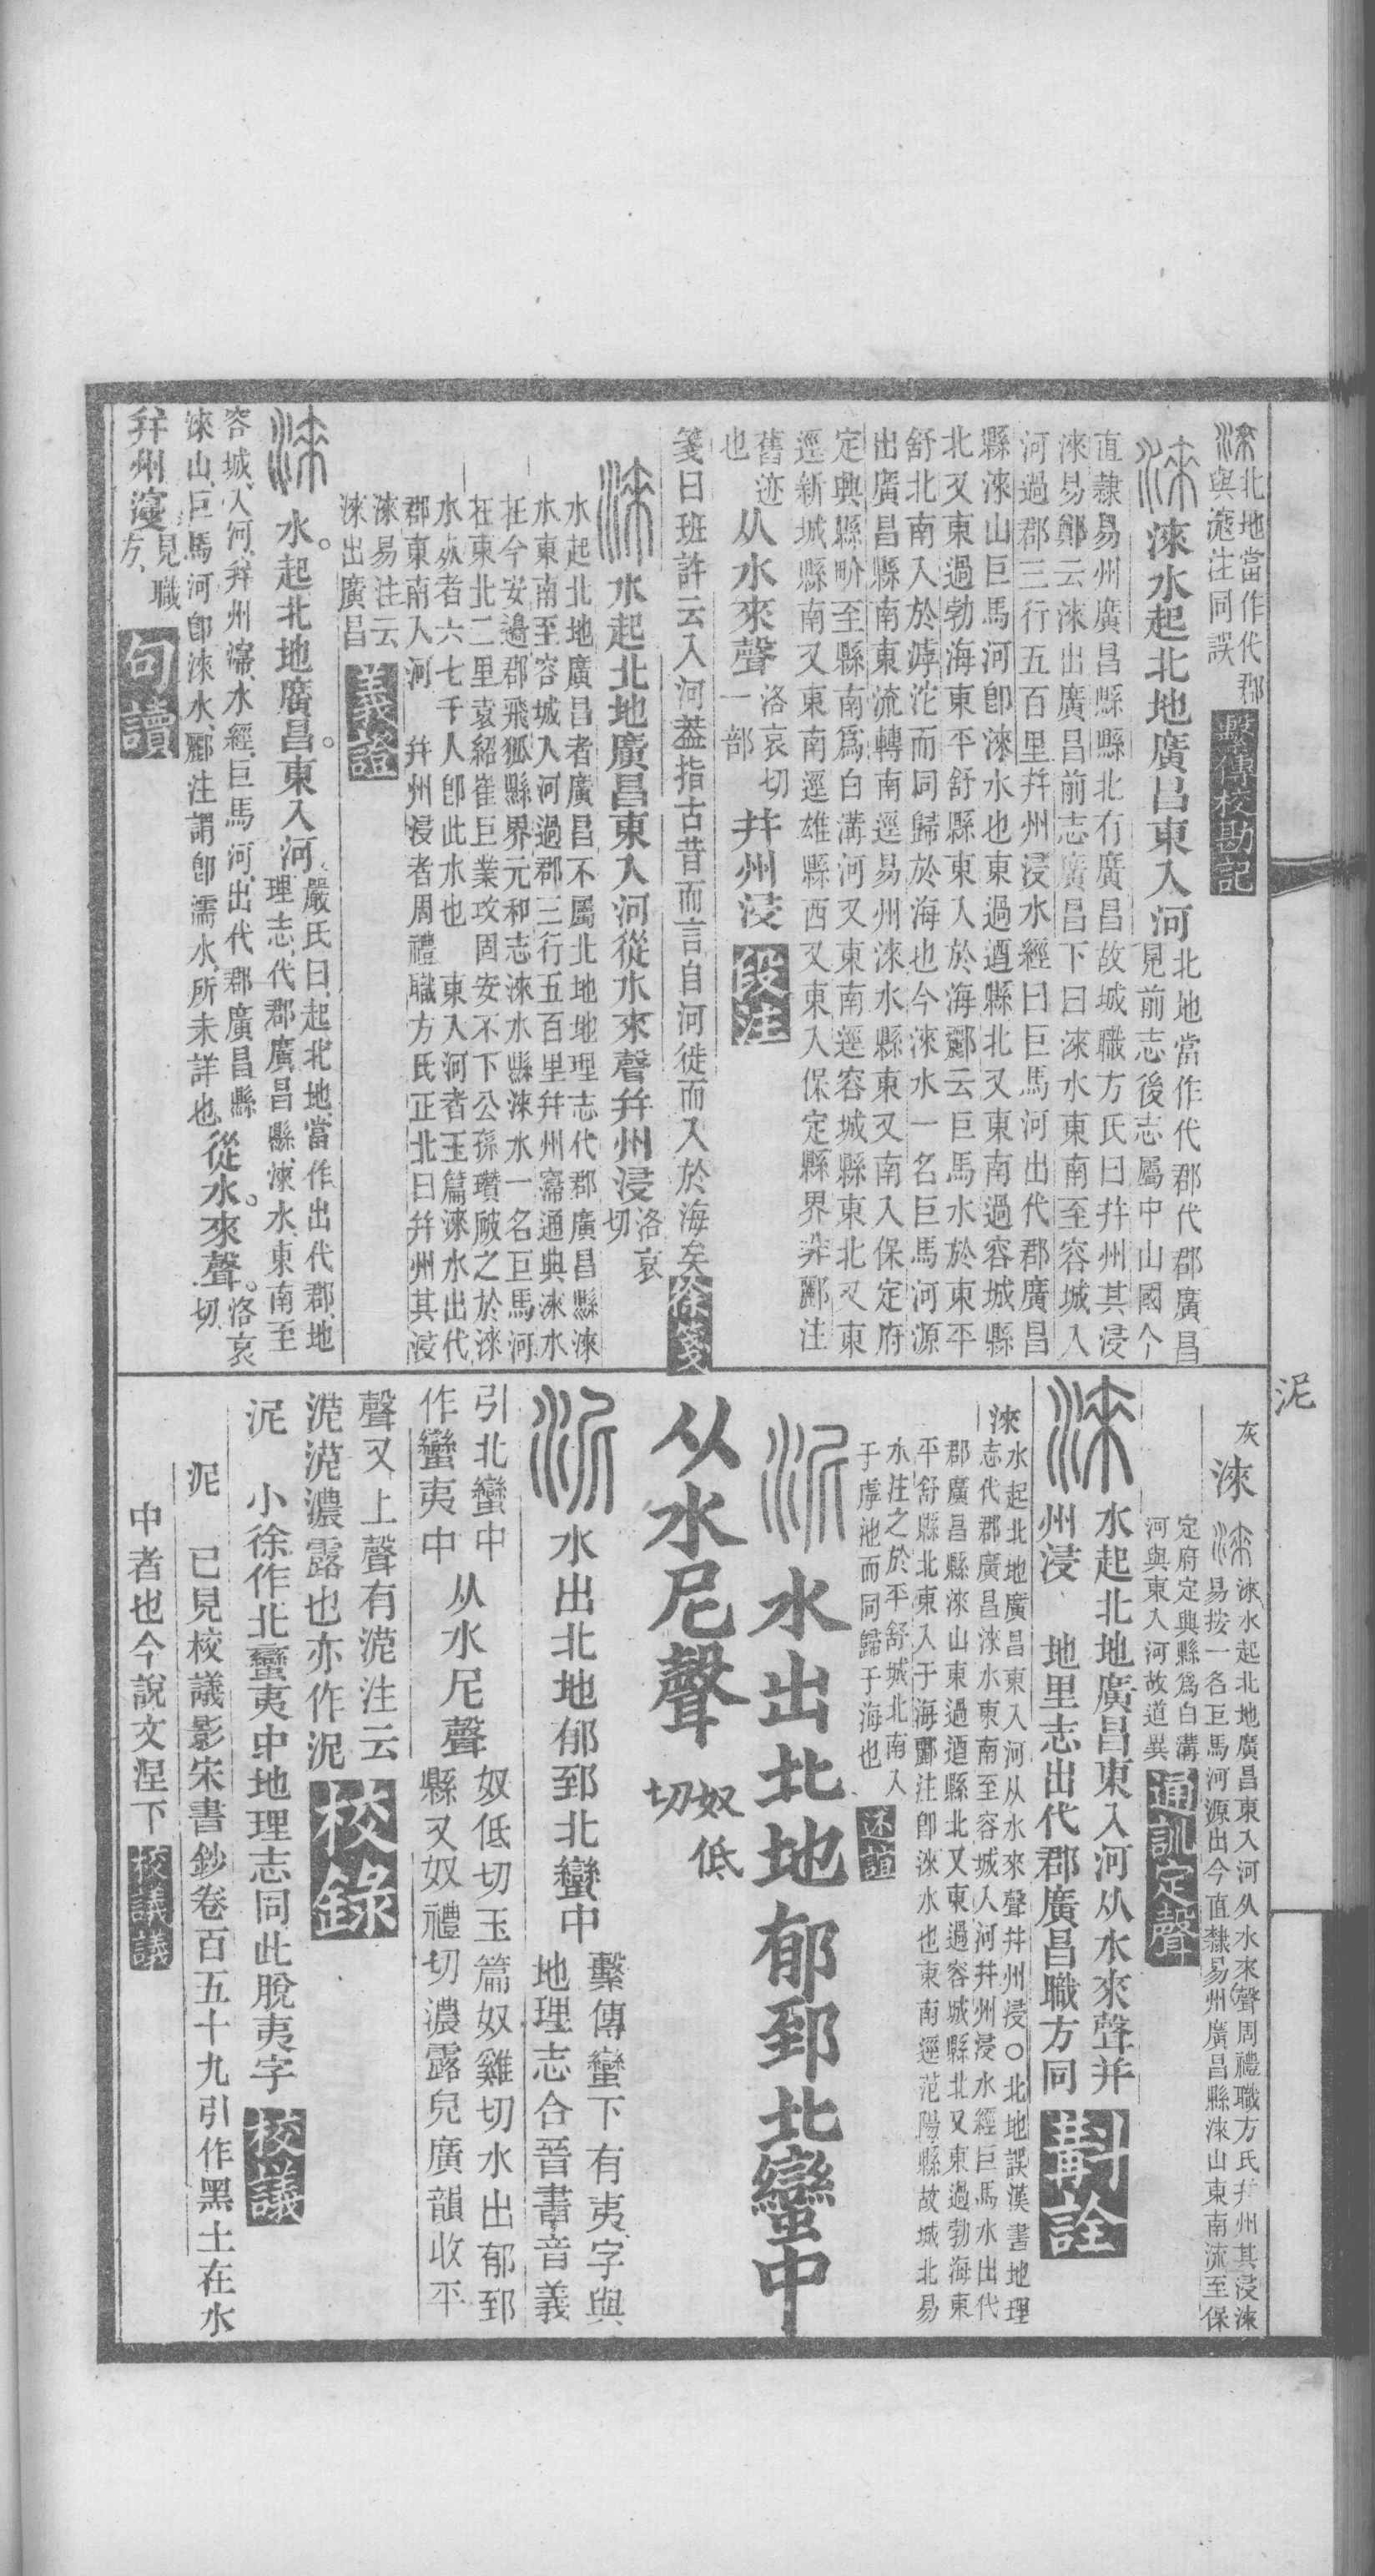 淶北地當作代郡
與滱注同誤
繫傳校勘記
淶水起北地廣昌東入河
北地當作代郡代郡廣昌
見前志後志屬中山國今
直隸易州廣昌縣縣北有廣昌故城職方氏曰幷州其浸
淶易鄭云淶出廣昌前志廣昌下曰淶水東南至容城入
河過郡三行五百里幷州浸水經曰巨馬河出代郡廣昌
縣淶山巨馬河卽淶水也東過遒縣北又東南過容城縣
北又東過勃海東平舒縣東入於海酈云巨馬水於東平
舒北南入於滹沱而同歸於海也今淶水一名巨馬河源
出廣昌縣南東流轉南逕易州淶水縣東又南入保定府
定興縣畍至縣南爲白溝河又東南逕容城縣東北又東
逕新城縣南又東南逕雄縣西又東入保定縣界非酈注
舊迹
也
从水來聲
洛哀切
一部
幷州浸
段注
箋曰班許云入河葢指古昔而言自河徙而入於海矣
徐箋
水起北地廣昌東入河從水來聲幷州浸
洛哀
切
水起北地廣昌者廣昌不屬北地地理志代郡廣昌縣淶
水東南至容城入河過郡三行五百里幷州寖通典淶水
在今安邊郡飛狐縣界元和志淶水縣淶水一名巨馬河
在東北二里袁紹崔巨業攻固安不下公孫瓚敗之於淶
水㱔者六七千人卽此水也 東入河者玉篇淶水出代
郡東南入河 幷州浸者周禮職方氏正北曰幷州其浸
淶易注云
淶出廣昌
義證
水。起北地廣昌。東入河、
嚴氏曰、起北地、當作出代郡、地
理志、代郡廣昌縣、淶水、東南至
容城、入河、幷州𡩻、水經、巨馬河、出代郡廣昌縣
淶山、巨馬河卽淶水、酈注謂卽濡水、所未詳也、
從水。來聲。
洛哀
切、
幷州浸
見職
方、
句讀
泥
灰
淶
淶水起北地廣昌東入河从水來聲周禮職方氏幷州其浸淶
易按一名巨馬河源出今直隸易州廣昌縣淶山東南流至保
定府定興縣爲白溝
河與東入河故道異
通訓定聲
水起北地廣昌東入河从水來聲幷
州浸 地里志出代郡廣昌職方同
斠詮
淶水起北地廣昌東入河从水來聲幷州浸○北地誤漢書地理
志代郡廣昌淶水東南至容城入河幷州浸水經巨馬水出代
郡廣昌縣淶山東過遒縣北又東過容城縣北又東過勃海東
平舒縣北東入于海酈注卽淶水也東南逕范陽縣故城北易
水注之於平舒城北南入
于虖池而同歸于海也
述誼
水出北地郁郅北蠻中
从水尼聲
奴低
切
水出北地郁郅北蠻中
繫傳蠻下有夷字與
地理志合晉書音義
引北蠻中
作蠻夷中
从水尼聲
奴低切玉篇奴雞切水出郁郅
縣又奴禮切濃露皃廣韻收平
聲又上聲有泥注云
泥泥濃露也亦作泥
校錄
泥 小徐作北蠻夷中地理志同此脫夷字
校議
泥 已見校議影宋書鈔卷百五十九引作黑土在水
中者也今說文涅下
校議議